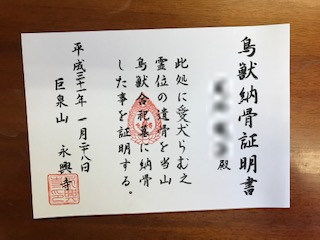 鳥獣納骨証明書
殿
此処に愛犬らむ之
霊位の遺骨を当山
鳥獣合祀墓に納骨
した事を証明する。
平成三十一年一月二十八日
巨泉山 永興寺